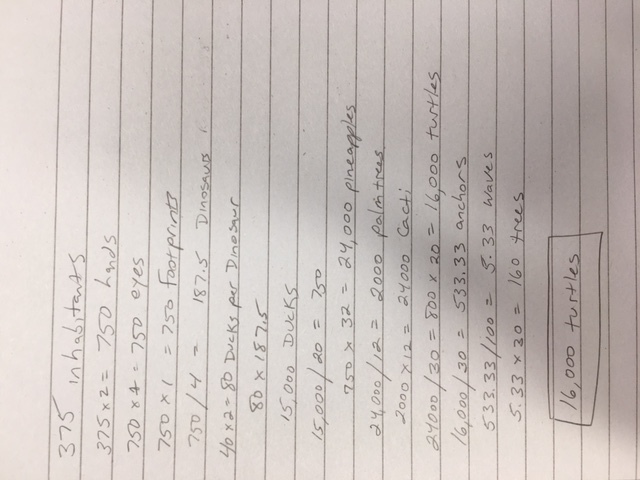 375 inhabitants
375 x 2 = 750 hands
750 x 1 = 750 eyes
750 x 1 = 750 footprints
750/4 = 187.5 Dinosaurs
40 x 2 = 80 Ducks per Dinosaur
80 x 187.5
15,000 Ducks
15,000/20 = 750
750 x 32 = 24,000 pineapples
24,000/12 = 2000 palmtrees
2000 x 12 = 24000 Cacti
24000/30 = 800 x 20 = 16,000 turtles
16,000/30 = 533.33 anchors
533.33/100 = 5.33 waves
5.33 x 30 = 160 trees
16,000 turtles